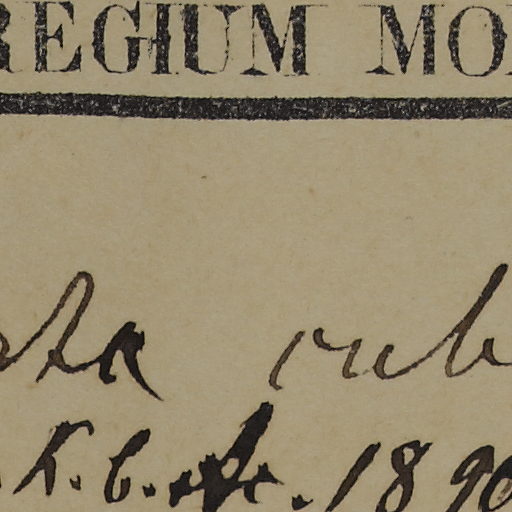 REGIUM MO
sta rub
K. b. 1890